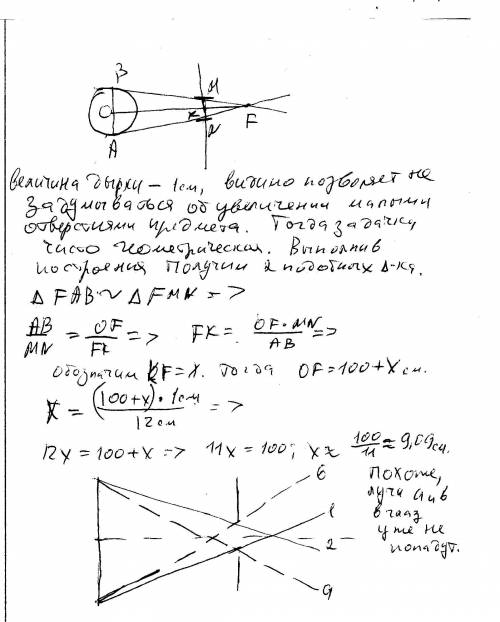 B
M
O
K
F
A
N
Величина дырки – 1 см, видимо позволяет не
задумываться об увеличении малыми
отверстиями предмета. Тогда задачка
чисто геометрическая. Выполнив
построения получим 2 подобных Δ-ка.
Δ FAB ~ Δ FMN =>
AB/MN = OF/FK => FK = OF·MN/AB =>
Обозначим KF = x. Тогда OF = 100 + x см.
X = (100+x)·1см/12см =>
12x = 100+x => 11x = 100; x ≈ 100/11 ≈ 9,09 см.
Похоже,
лучи а и в
в глаз
уже не
попадут.
в
1
2
а